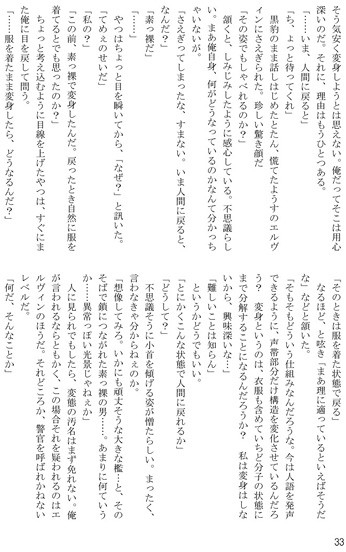 そう気安く変身しようとは思えない。俺だってそこは用心
深いのだ。それに、理由はもうひとつある。
「……いま、人間に戻ると」
「ち、ちょっと待ってくれ」
　黒豹のまま話しはじめたとたん、慌てたようすのエルヴ
ィンにさえぎられた。珍しい驚き顔だ
「その姿でもしゃべれるのか？」
　頷くと、しみじみしたように感心している。不思議らし
い。まあ俺自身、何がどうなっているのかなんて分かっち
ゃいないが。
「さえぎってしまったな、すまない。いま人間に戻ると、
なんだ？」
「素っ裸だ」
「……」
「てめぇのせいだ」
　やつはちょっと目を瞬いてから、「なぜ？」と訊いた。
「私の？」
「この前、素っ裸で変身したんだ。戻ったとき自然に服を
着てるとでも思ったのか？」
　ちょっと考え込むように目線を上げたやつは、すぐにま
た俺に目を戻して問う。
「……服を着たまま変身したら、どうなるんだ？」
「そのときは服を着た状態で戻る」
　なるほど、と呟き「まあ理に適っているといえばそうだ
な」などと頷いた。
「そもそもどういう仕組みなんだろうな。今は人語を発声
できるように、声帯部分だけ構造を変化させているんだろ
う？　変身というのは、衣服も含めていちど分子の状態に
まで分解することになるんだろうか？　私は変身はしな
いから、興味深いな…」
「難しいことは知らん」
　というかどうでもいい。
「とにかくこんな状態で人間に戻れるか」
「どうして？」
　不思議そうに小首を傾げる姿が憎たらしい。まったく、
言わなきゃ分からねぇのか。
「想像してみろ。いかにも頑丈そうな大きな檻…と、その
そばで鎖につながれた素っ裸の男……。あまりに何ていう
か……異常っぽい光景じゃねぇか」
　人に見られでもしたら、変態の汚名はまず免れない。俺
が言われるならともかく、この場合それを疑われるのはエ
ルヴィンのほうだ。それどころか、警官を呼ばれかねない
レベルだ。
「何だ、そんなことか」
33